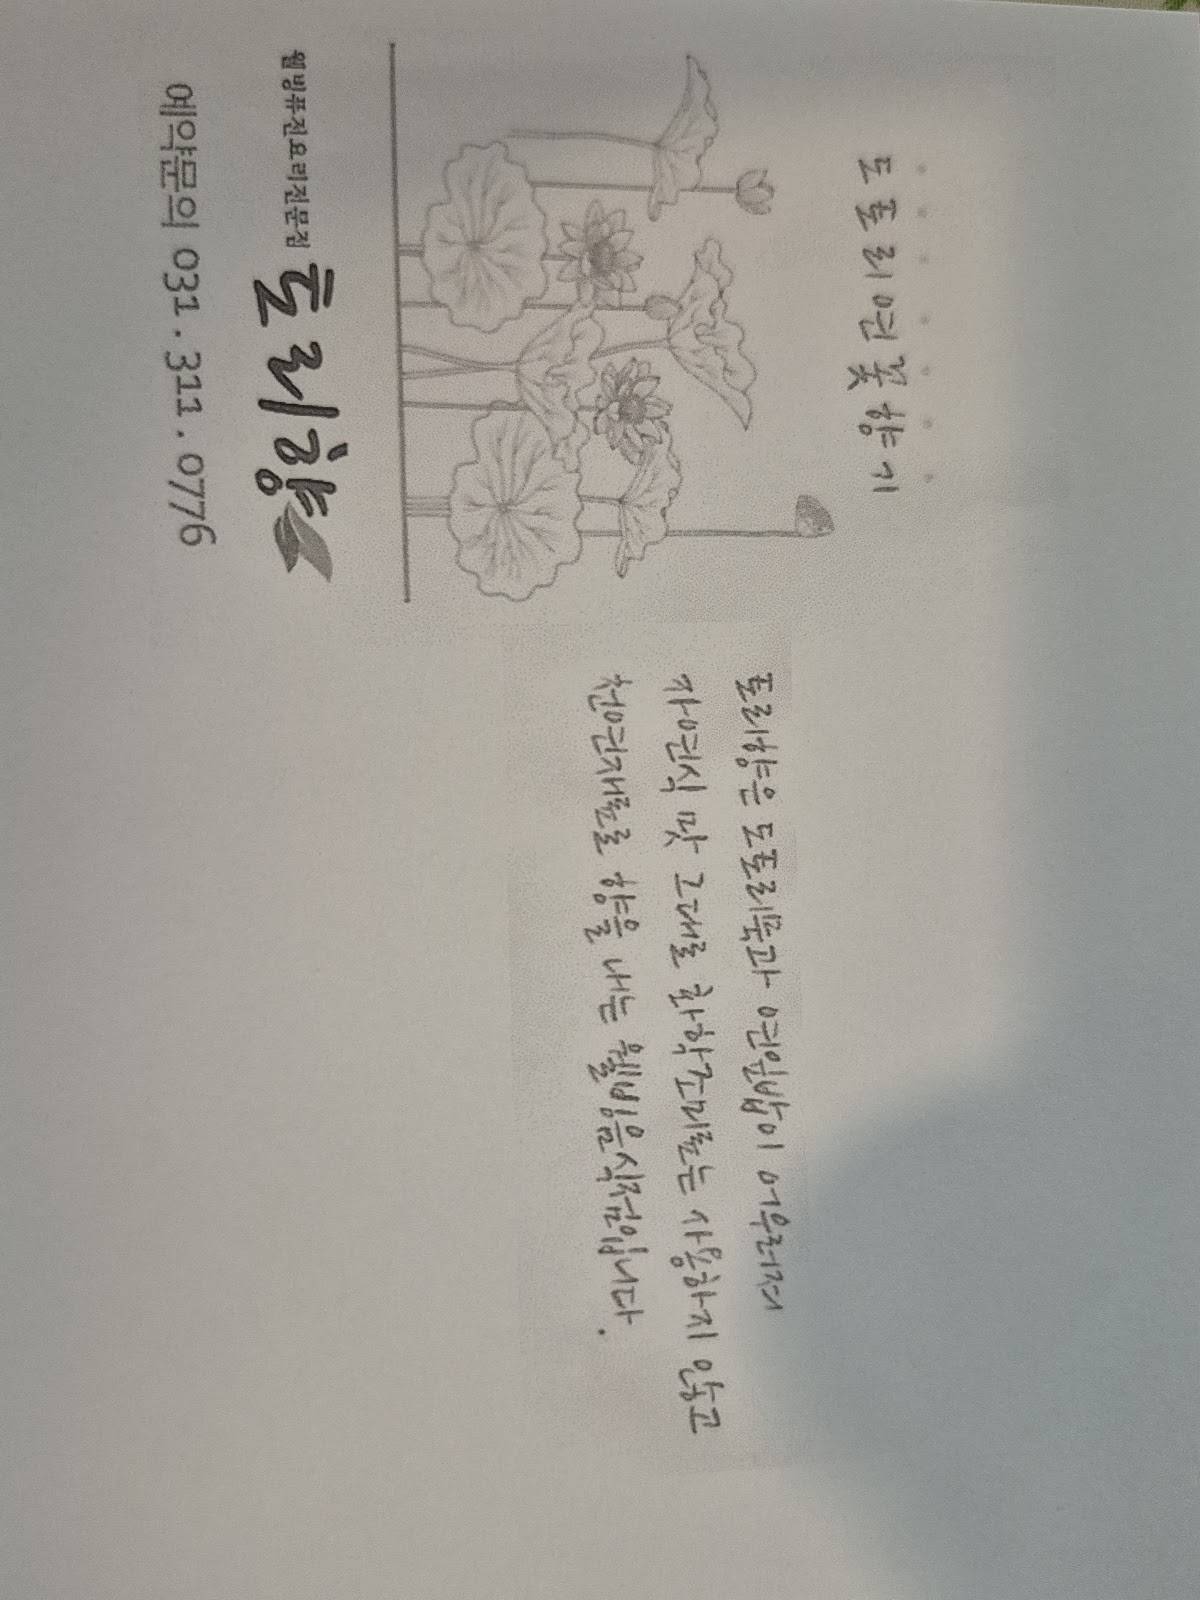 도토리연꽃향기
토리향은 도토리묵과 연잎밥이 어우러져
자연식 맛 그대로 화학조미료는 사용하지 않고
천연재료로 향을 내는 웰빙음식점입니다.
웰빙퓨전요리전문점 토리향
예약문의 031.311.0776